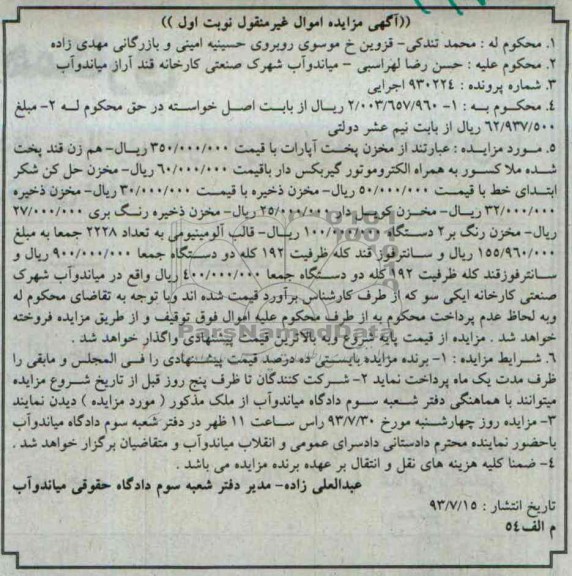 ((آگهی مزایده اموال غیرمنقول نوبت اول ))
۱. محکوم له : محمد تندکی- قزوین خ موسوی روبروی حسینیه امینی و بازرگانی مهدی زاده
۲. محکوم علیه : حسن رضا لهراسبی - میاندوآب شهرک صنعتی کارخانه قند آراز میاندوآب
۳. شماره پرونده : ۹۳۰۲۲۴ اجرایی
۴. محکوم به : ۱- ۲/۰۰۳/۶۵۷/۹۶۰ ریال از بابت اصل خواسته در حق محکوم له ۲- مبلغ
۶۲/۹۳۷/۵۰۰ ریال از بابت نیم عشر دولتی
۵. مورد مزایده : عبارتند از مخزن پخت آپارات با قیمت ۳۵۰/۰۰۰/۰۰۰ ریال- هم زن قند پخت
شده ملا کسور به همراه الکتروموتور گیربکس دار باقیمت ۶۰/۰۰۰/۰۰۰ ریال- مخزن حل کن شکر
ابتدای خط با قیمت ۵۰/۰۰۰/۰۰۰ ریال- مخزن ذخیره با قیمت ۳۰/۰۰۰/۰۰۰ ریال- مخزن ذخیره
۳۲/۰۰۰/۰۰۰ ریال- مخزن کویل دار ۲۵/۰۰۰/۰۰۰ ریال- مخزن ذخیره رنگ بری ۲۷/۰۰۰/۰۰۰
ریال- مخزن رنگ بر ۲ دستگاه ۱۰۰/۰۰۰/۰۰۰ ریال- قالب آلومینیومی به تعداد ۲۲۲۸ جمعا به مبلغ
۱۵۵/۹۶۰/۰۰۰ ریال و سانترفوژ قند کله ظرفیت ۱۹۲ کله دو دستگاه جمعا ۹۰۰/۰۰۰/۰۰۰ ریال و
سانترفوژقند کله ظرفیت ۱۹۲ کله دو دستگاه جمعا ۴۰۰/۰۰۰/۰۰۰ ریال واقع در میاندوآب شهرک
صنعتی کارخانه ایکی سو که از طرف کارشناس برآورد قیمت شده اند وبا توجه به تقاضای محکوم له
وبه لحاظ عدم پرداخت محکوم به از طرف محکوم علیه اموال فوق توقیف و از طریق مزایده فروخته
خواهد شد . مزایده از قیمت پایه شروع وبه بالاترین قیمت پیشنهادی واگذار خواهد شد .
۶. شرایط مزایده : ۱- برنده مزایده بایستی ده درصد قیمت پیشنهادی را فی المجلس و مابقی را
ظرف مدت یک ماه پرداخت نماید ۲- شرکت کنندگان تا ظرف پنج روز قبل از تاریخ شروع مزایده
میتوانند با هماهنگی دفتر شعبه سوم دادگاه میاندوآب از ملک مذکور ( مورد مزایده ) دیدن نمایند
۳- مزایده روز چهارشنبه مورخ ۹۳/۷/۳۰ راس ساعت ۱۱ ظهر در دفتر شعبه سوم دادگاه میاندوآب
باحضور نماینده محترم دادستانی دادسرای عمومی و انقلاب میاندوآب و متقاضیان برگزار خواهد شد .
۴- ضمنا کلیه هزینه های نقل و انتقال بر عهده برنده مزایده می باشد .
عبدالعلی زاده- مدیر دفتر شعبه سوم دادگاه حقوقی میاندوآب
تاریخ انتشار : ۹۳/۷/۱۵
م الف ۵۴
ParsNamadData